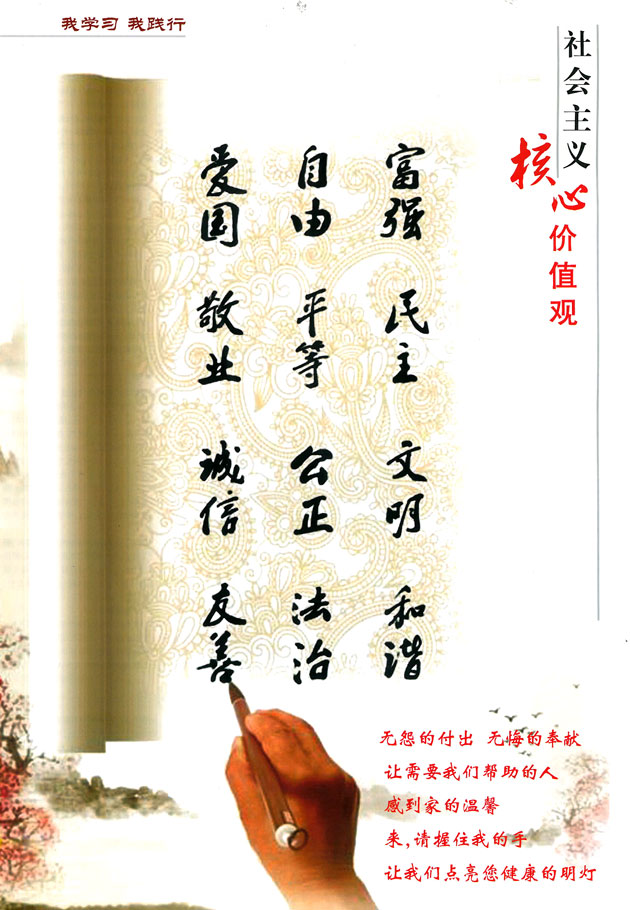 我学习 我践行
社会主义
核心价值观
富强 民主 文明 和谐
自由 平等 公正 法治
爱国 敬业 诚信 友善
无怨的付出 无悔的奉献
让需要我们帮助的人
感到家的温馨
来,请握住我的手
让我们点亮您健康的明灯